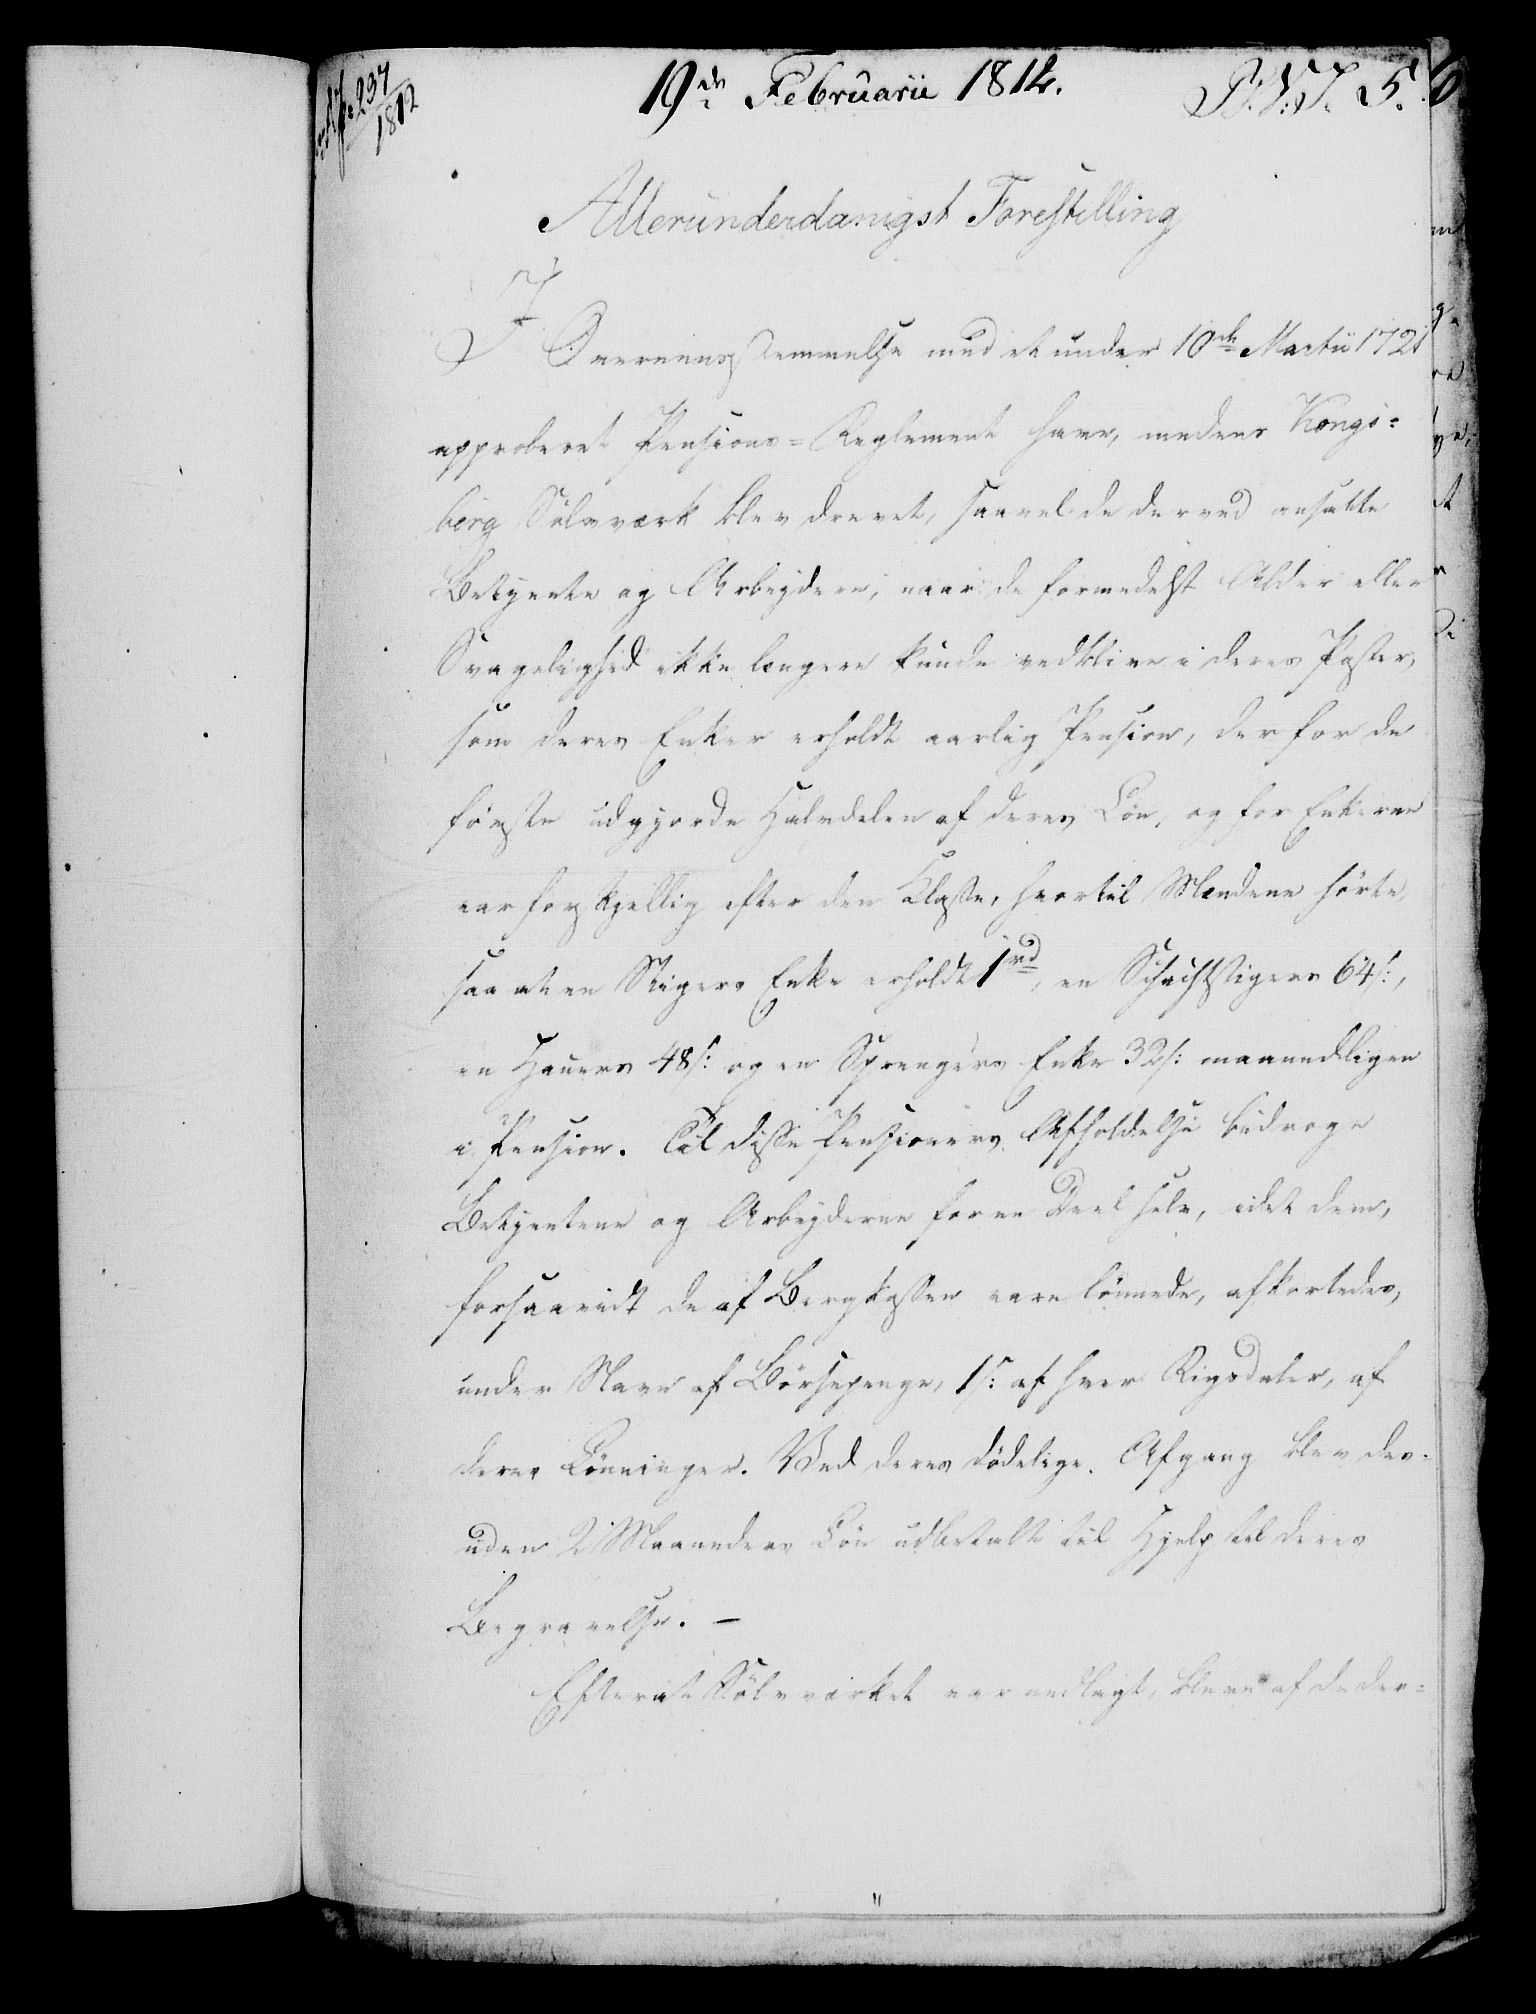 237
1812
19de Februarii 1812.
P.V.J. 5.
Allerunderdanigst Forestilling
I
Overeensstemmelse med et under 10de Martii 1721
approberet Pensions=Reglement have, medens Kongs=
berg Sölvværk blev drevet, saavel de derved ansatte
Betjente og Arbejdere, naar de formedelst Alder eller
Svagelighed ikke længere kunde vedblive i deres Poster,
som deres Enker erholdt aarlig Pension, der for de
förste udgjorde Halvdelen af deres Lön, og for Enkerne
var forskjellig efter den Klasse, hvortil Mændene hörte,
saa at en Stigers Enke erholdt 1rd, en Schachtstigers 64s:,
en Hauers 48s: og en Sprengers Enke 32s: maanedligen
i Pension. Til disse Pensioners Afholdelse bidroge
Betjentene og Arbejderne for en Deel selv, idet dem,
forsaavidt de af Bergkassen vare lönnede, afkortedes,
under Navn af Börsepenge, 1s: af hver Rigsdaler, af
deres Lönninger. Ved deres dödelige Afgang blev des-
uden 2 Maaneders Lön udbetalt til Hjelp til deres
Begravelse. -
Efterat Sölvværket var nedlagt, bleve af de der=